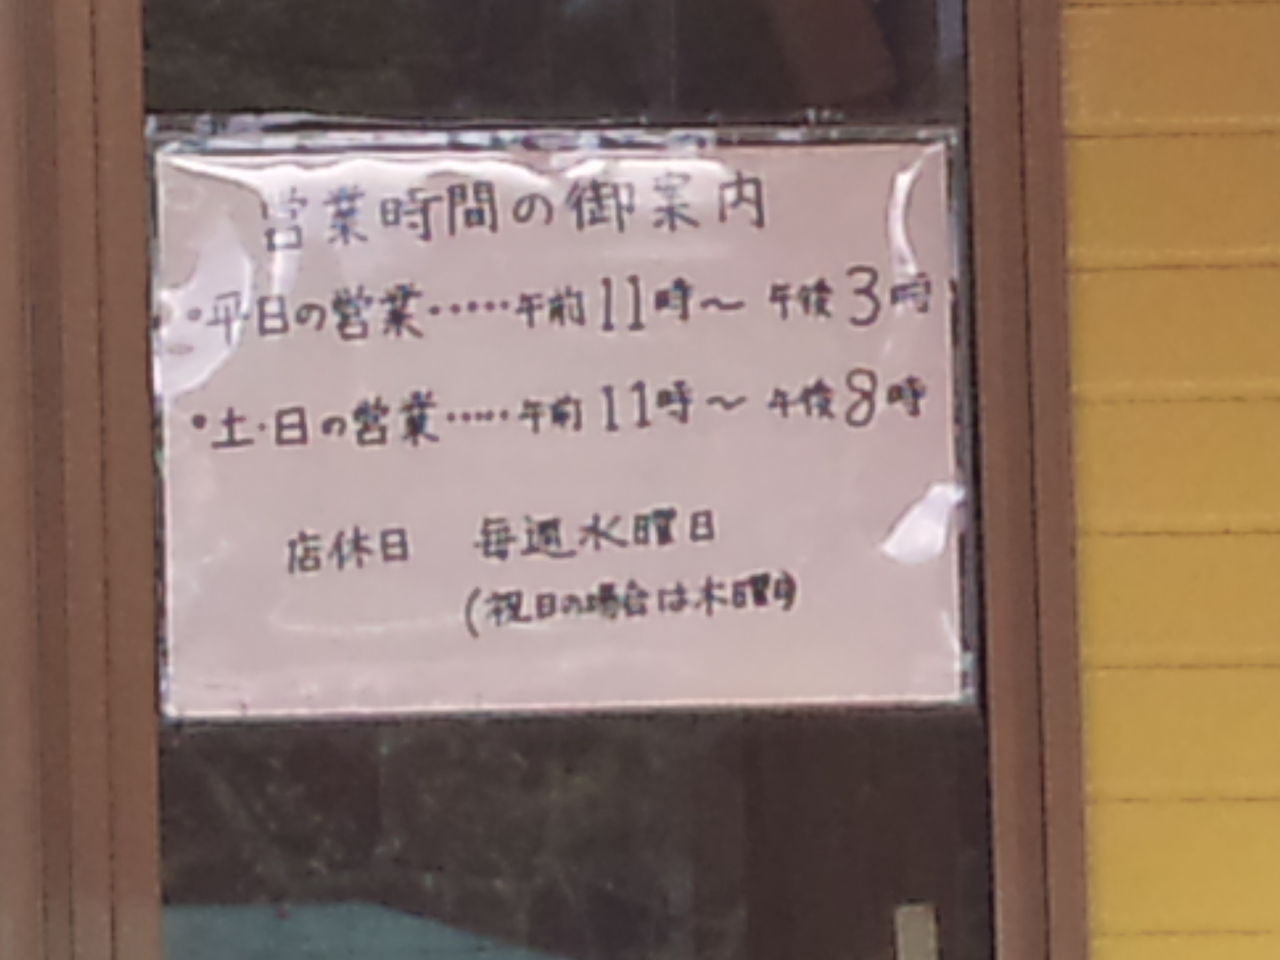 営業時間の御案内
・平日の営業……午前11時〜午後3時
・土・日の営業……午前11時〜午後8時
店休日 毎週水曜日
(祝日の場合は木曜日)